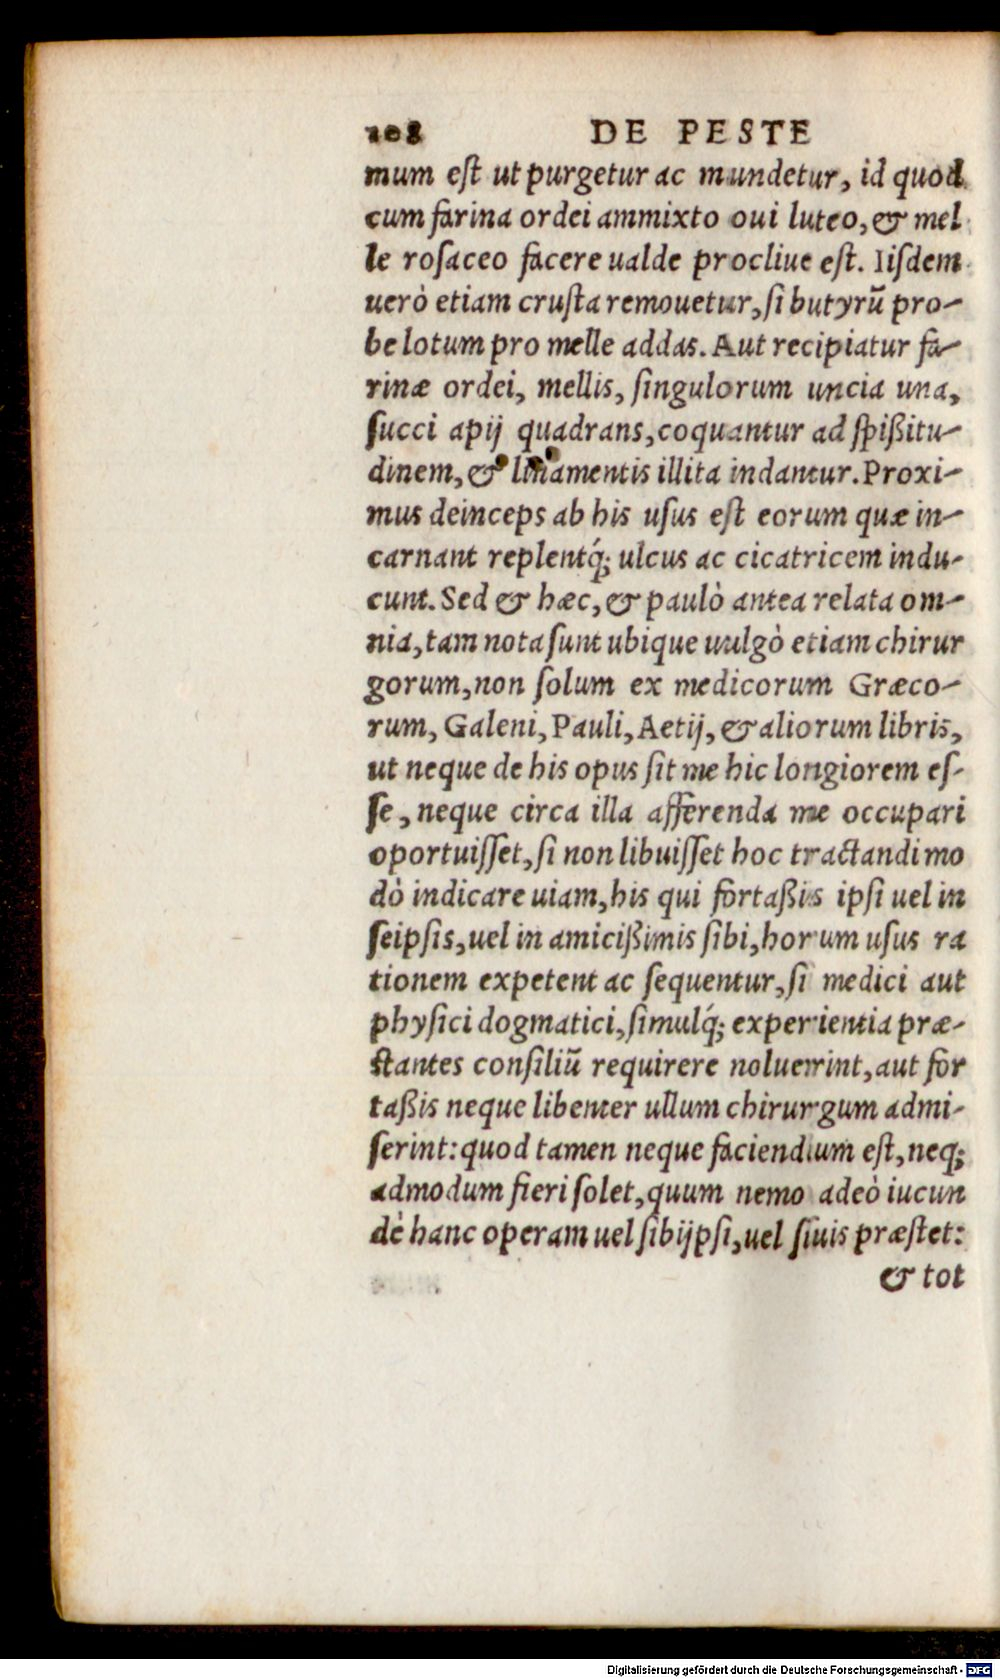 108 DE PESTE
mum eſt ut purgetur ac mundetur, id quod
cum farina ordei ammixto oui luteo, & mel
le roſaceo facere ualde procliue eſt. Iiſdem
uerò etiam cruſta remouetur, ſi butyrũ pro-
be lotum pro melle addas. Aut recipiatur fa-
rinæ ordei, mellis, ſingulorum uncia una,
ſucci apij quadrans, coquantur ad ſpißitu-
dinem, & linamentis illita indantur. Proxi-
mus deinceps ab his uſus eſt eorum quæ in-
carnant replentq́; ulcus ac cicatricem indu-
cunt. Sed & hæc, & paulò antea relata om-
nia, tam nota ſunt ubique uulgò etiam chirur
gorum, non ſolum ex medicorum Græco-
rum, Galeni, Pauli, Aetij, & aliorum libris,
ut neque de his opus ſit me hic longiorem eſ-
ſe, neque circa illa afferenda me occupari
oportuiſſet, ſi non libuiſſet hoc tractandi mo
dò indicare uiam, his qui fortaßis ipſi uel in
ſeipſis, uel in amicißimis ſibi, horum uſus ra
tionem expetent ac ſequentur, ſi medici aut
phyſici dogmatici, ſimulq́; experientia præ-
ſtantes conſiliũ requirere noluerint, aut for
taßis neque libenter ullum chirurgum admi-
ſerint: quod tamen neque faciendum eſt, neq;
admodum fieri ſolet, quum nemo adeò iucun
dè hanc operam uel ſibijpſi, uel ſuis præſtet:
& tot
Digitalisierung gefördert durch die Deutsche Forschungsgemeinschaft - DFG